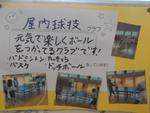 屋内球技クラブ
元気で楽しくボール
をつかってるクラブです!
バドミントン
バスケ ドッヂボール